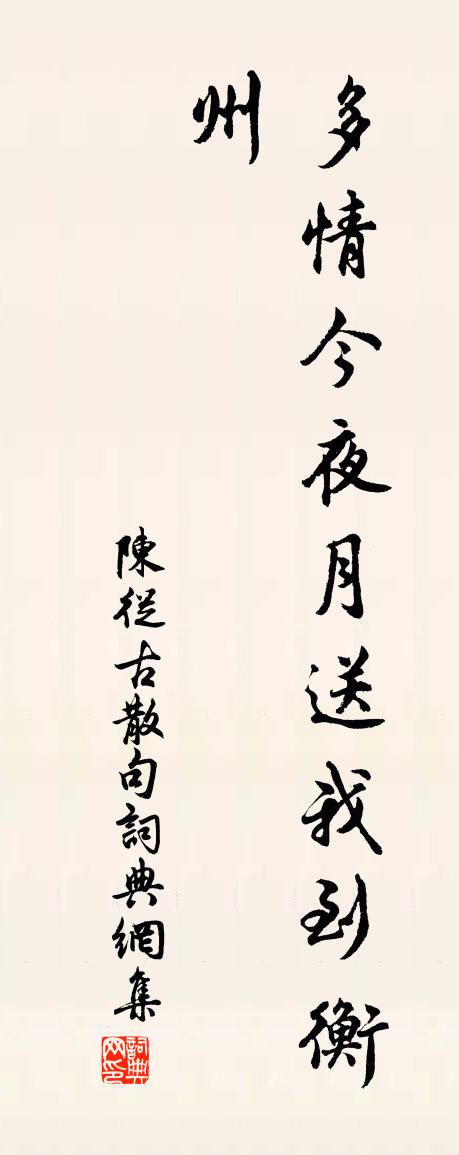 多情今夜月送我到衡
州
陳從古散句詞典網集
詞典网印